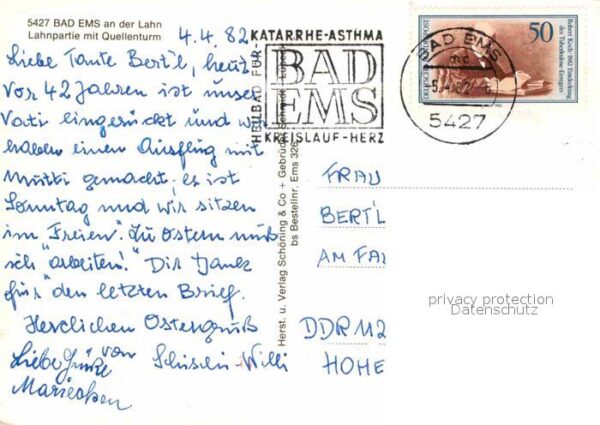 5427 BAD EMS an der Lahn
Lahnpartie mit Quellenturm
4.4.82
Liebe Tante Bert'l, heut
vor 42 Jahren ist unser
Vati eingerückt und wir
haben einen Ausflug mit
Mutti gemacht. es ist
Sonntag und wir sitzen
im Freien". Zu Ostern muß
ich "arbeiten!" Dir Dank
für den letzten Brief.
Herzlichen Ostergruß
von
Liebe Grüße
Willi
HEILBAD FÜR
KATARRHE-ASTHMA
BAD
EMS
KREISLAUF-HERZ
Herst. u. Verlag Schöning & Co + Gebrüder Schmidt
bs Bestellnr. Ems 326
50
Robert Koch 1882 Entdeckung
des Tuberkulose-Erregers
DEUTSCHE BUNDESPOST
BAD EMS
5427
FRAU
BERTL
AM FAL
DDR 112
HOHE
privacy protection
Datenschutz